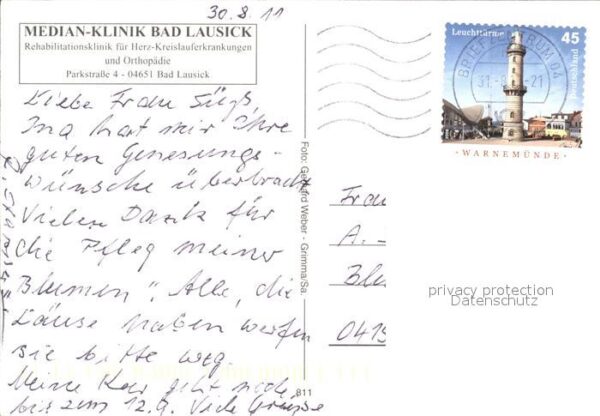 30.8.11
MEDIAN-KLINIK BAD LAUSICK
Rehabilitationsklinik für Herz-Kreislauferkrankungen
und Orthopädie
Parkstraße 4 - 04651 Bad Lausick
Liebe Frau
Ina hat mir Ihre
guten Genesungs-
wünsche überbracht
Vielen Dank für
die Pfleg meiner
Blumen". Alle, die
Läuse haben werfen
sie bitte weg.
Meine Kur geht noch
bis zum 12.9. Viele Grüße
Foto: Gerhard Weber - Grimma/Sa.
811
Leuchttürme
45
Deutschland
WARNEMÜNDE
BRIEFZENTRUM 04
31. -21
Frau
A.
Blu
0415
privacy protection
Datenschutz